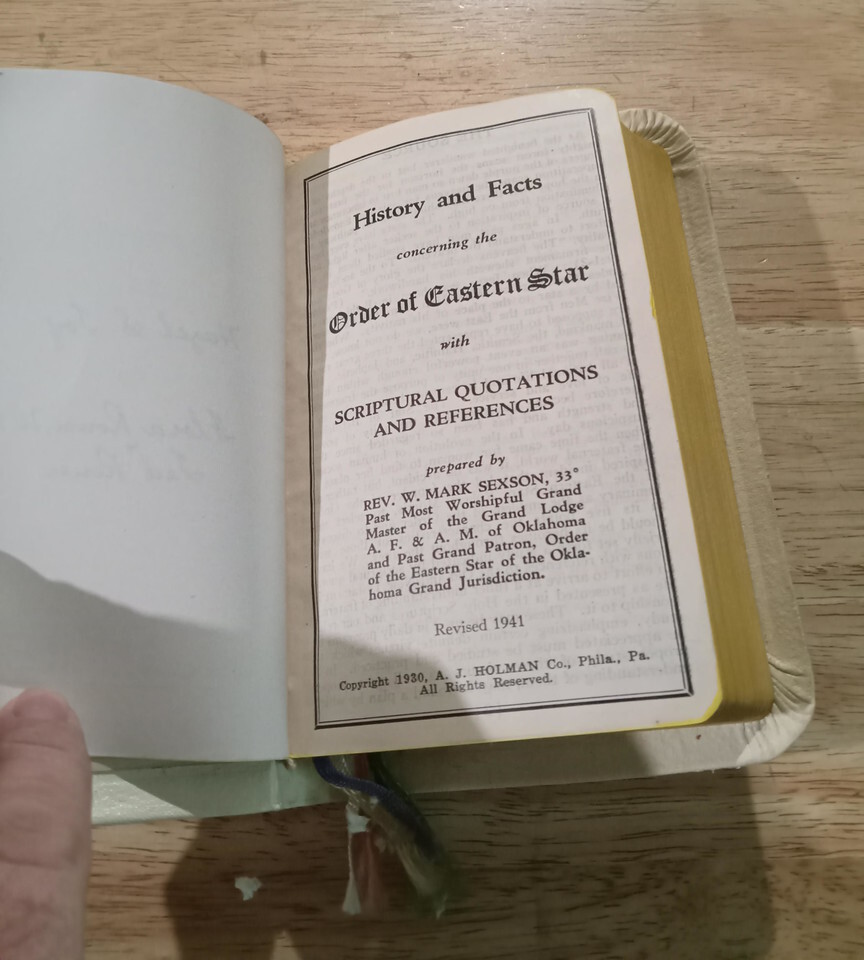 History and Facts
concerning the
Order of Eastern Star
with
SCRIPTURAL QUOTATIONS
AND REFERENCES
prepared by
REV. W. MARK SEXSON, 33°
Past Most Worshipful Grand
Master of the Grand Lodge
A. F. & A. M. of Oklahoma
and Past Grand Patron, Order
of the Eastern Star of the Okla-
homa Grand Jurisdiction.
Revised 1941
Copyright 1930, A. J. HOLMAN Co., Phila., Pa.
All Rights Reserved.